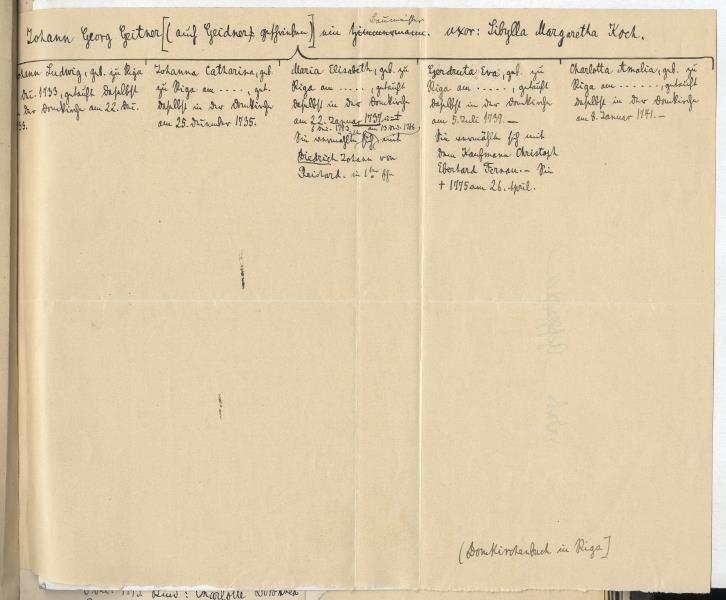 Baumeister
Johann Georg Geitner [(auch Geidner geschrieben)] ein Zimmermann. uxor: Sibylla Margaretha Koch.
Johann Ludwig, geb. zu Riga
1733, getauft daselbst
in der Domkirche am 22. Dec.
33.
Johanna Catharina, geb.
zu Riga am ...., get.
daselbst in der Domkirche
am 25. Dezember 1735.
Maria Elisabeth, geb. zu
Riga am ....., getauft
daselbst in der Domkirche
am 22. Januar 1737
Sie vermählte sich mit
Diedrich Johann von
Reichard. in 1ter Ehe
Gerdruta Eva, geb. zu
Riga am ......, getauft
daselbst in der Domkirche
am 5. Juli 1739. —
Sie vermählte sich mit
dem Kaufmann Christoph
Eberhard Fernau. — Sie
† 1775 am 26. April.
Charlotta Amalia, geb. zu
Riga am ......., getauft
daselbst in der Domkirche
am 8. Januar 1741. —
(Domkirchenbuch in Riga]
Kind: Charlotte Dorothea